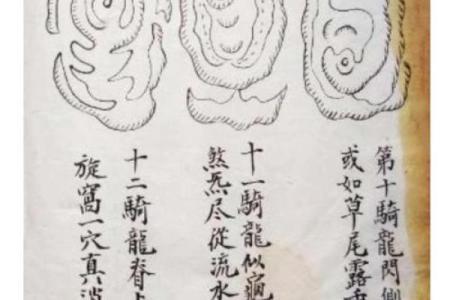 第十騎龍閃側
或如草尾露
十一騎龍似龜
煞炁尽從流水
十二騎龍脊
旋窩一穴真